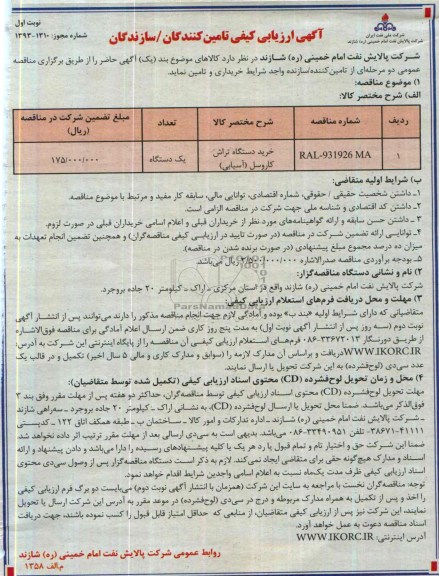 نوبت اول
شماره مجوز: ۱۳۱۰-۱۳۹۳
شرکت ملی نفت ایران
شرکت پالایش نفت امام خمینی (ره) شازند
آگهی ارزیابی کیفی تامین‌کنندگان/سازندگان
شرکت پالایش نفت امام خمینی (ره) شازند در نظر دارد کالاهای موضوع بند (یک) آگهی حاضر را از طریق برگزاری مناقصه
عمومی دو مرحله‌ای از تامین‌کننده/سازنده واجد شرایط خریداری و تامین نماید.
۱) موضوع مناقصه:
الف) شرح مختصر کالا:
ردیف
شماره مناقصه
شرح مختصر کالا
تعداد
مبلغ تضمین شرکت در مناقصه (ریال)
۱
RAL-931926 MA
خرید دستگاه تراش کاروسل (آسیابی)
یک دستگاه
۱۷۵/۰۰۰/۰۰۰
ب) شرایط اولیه متقاضی:
۱ـ داشتن شخصیت حقیقی / حقوقی، شماره اقتصادی، توانایی مالی، سابقه کار مفید و مرتبط با موضوع مناقصه.
۲ـ داشتن کد اقتصادی و شناسه ملی جهت شرکت در مناقصه الزامی است.
۳ـ داشتن حسن سابقه و ارائه گواهینامه‌های مورد نظر از خریداران قبلی و اعلام اسامی خریداران قبلی در صورت لزوم.
۴ـ توانایی ارائه تضمین شرکت در مناقصه (در صورت تایید در ارزیابی کیفی مناقصه‌گران) و همچنین تضمین انجام تعهدات به
میزان ده درصد مجموع مبلغ پیشنهادی (در صورت برنده شدن در مناقصه).
۵ـ بودجه برآوردی مناقصه صدرالاشاره ریال می‌باشد.
۲) نام و نشانی دستگاه مناقصه‌گزار:
شرکت پالایش نفت امام خمینی (ره) شازند واقع در استان مرکزی ـ اراک ـ کیلومتر ۲۰ جاده بروجرد.
۳) مهلت و محل دریافت فرم‌های استعلام ارزیابی کیفی:
متقاضیانی که دارای شرایط اولیه «بند ب» بوده و آمادگی لازم جهت انجام مناقصه مذکور را دارند می‌توانند پس از انتشار آگهی
نوبت دوم (سه روز پس از انتشار آگهی نوبت اول) به مدت پنج روز کاری ضمن ارسال اعلام آمادگی برای مناقصه فوق‌الاشاره
از طریق دورنگار ۳۳۶۷۲۰۱۳-۰۸۶ فرم‌های استعلام ارزیابی کیفی آن مناقصه را از پایگاه اینترنتی این شرکت به آدرس:
WWW.IKORC.IR دریافت و براساس آن مدارک لازمه را (سوابق و مدارک کاری و مالی ۵ سال اخیر) تکمیل و در قالب یک
عدد سی‌دی (لوح‌فشرده) به این شرکت تحویل یا ارسال نمایند.
۴) محل و زمان تحویل لوح‌فشرده (CD) محتوی اسناد ارزیابی کیفی (تکمیل شده توسط متقاضیان):
مهلت تحویل لوح‌فشرده (CD) محتوی اسناد ارزیابی کیفی توسط مناقصه‌گران، حداکثر دو هفته پس از مهلت مقرر وفق بند ۳
فوق‌الذکر می‌باشند. ضمنا محل تحویل یا ارسال لوح‌فشرده (CD)، به نشانی اراک ـ کیلومتر ۲۰ جاده بروجرد ـ سه‌راهی شازند
ـ شرکت پالایش نفت امام خمینی (ره) شازند ـ اداره تدارکات و امور کالا ـ ساختمان ب ـ طبقه همکف اتاق ۱۲۲ ـ کدپستی
۴۱۱۱۱-۳۸۶۷۱ ـ تلفن ۳۳۴۹۰۹۵۱-۰۸۶ می‌باشد. بدیهی است به سی‌دی ارسالی بعد از مهلت مقرر ترتیب اثر داده نخواهد شد.
ضمنا این شرکت حق و اختیار تام و تمام قبول یا رد هر یک یا کلیه پیشنهادهای رسیده را دارا می‌باشد و دادن پیشنهاد و ارائه
اسناد و مدارک هیچ‌گونه حقی برای متقاضی ایجاد نمی‌کند. لازم به ذکر است دستگاه مناقصه‌گزار پس از وصول سی‌دی محتوی
اسناد ارزیابی کیفی ظرف مدت یک‌ماه نسبت به اعلام اسامی واجدین شرایط اقدام خواهد نمود.
توجه: مناقصه‌گران نخست با مراجعه به سایت این شرکت (همزمان با انتشار آگهی نوبت دوم) می‌بایست دو برگ فرم ارزیابی کیفی
را اخذ و پس از تکمیل به همراه مدارک مربوطه و درج در سی‌دی (لوح‌فشرده) در موعد مقرر به آدرس این شرکت ارسال یا تحویل
نمایند، این شرکت نیز پس از ارزیابی کیفی متقاضیان، از منابعی که حداقل امتیاز قابل قبول را کسب نموده باشند، جهت دریافت
اسناد مناقصه دعوت به عمل خواهد آورد.
آدرس اینترنتی: WWW.IKORC.IR
روابط عمومی شرکت پالایش نفت امام خمینی (ره) شازند
م‌الف ۱۳۵۸